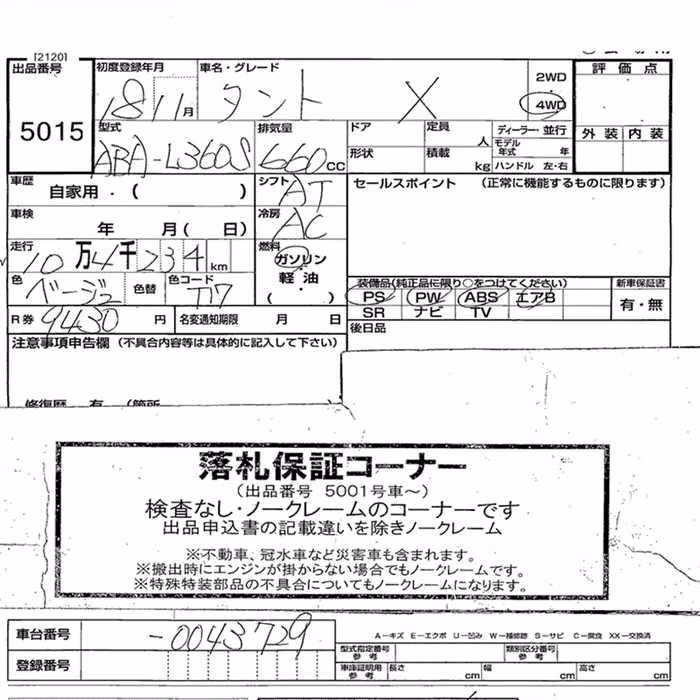 [2120]
出品番号 初度登録年月 車名・グレード 2WD 評価点
5015 18 11月 タント X 4WD
型式 排気量 ドア 定員 人 ディーラー・並行 外装 内装
ABA-L360S 660cc 形状 積載 kg モデル年式 年 ハンドル 左・右
車歴 自家用・( ) シフト AT セールスポイント (正常に機能するものに限ります)
車検 年 月( 日) 冷房 AC
走行 10万4千234km 燃料 ガソリン
色 ベージュ 色替 色コード T17 軽油 ( ) 装備品(純正品に限り○をつけてください) 新車保証書
PS PW ABS エアB 有・無
R券 9430円 名変通知期限 月 日 SR ナビ TV
注意事項申告欄 (不具合内容等は具体的に記入して下さい) 後日品
修復歴 有 (箇所
落札保証コーナー
(出品番号 5001号車~)
検査なし・ノークレームのコーナーです
出品申込書の記載違いを除きノークレーム
※不動車、冠水車など災害車も含まれます。
※搬出時にエンジンが掛からない場合でもノークレームです。
※特殊特装部品の不具合についてもノークレームになります。
車台番号 -0043729 A-キズ E-エクボ U-凹み W-補修跡 S-サビ C-腐食 XX-交換済
登録番号 型式指定番号参考 類別区分番号参考
車庫証明用参考 長さ cm 幅 cm 高さ cm